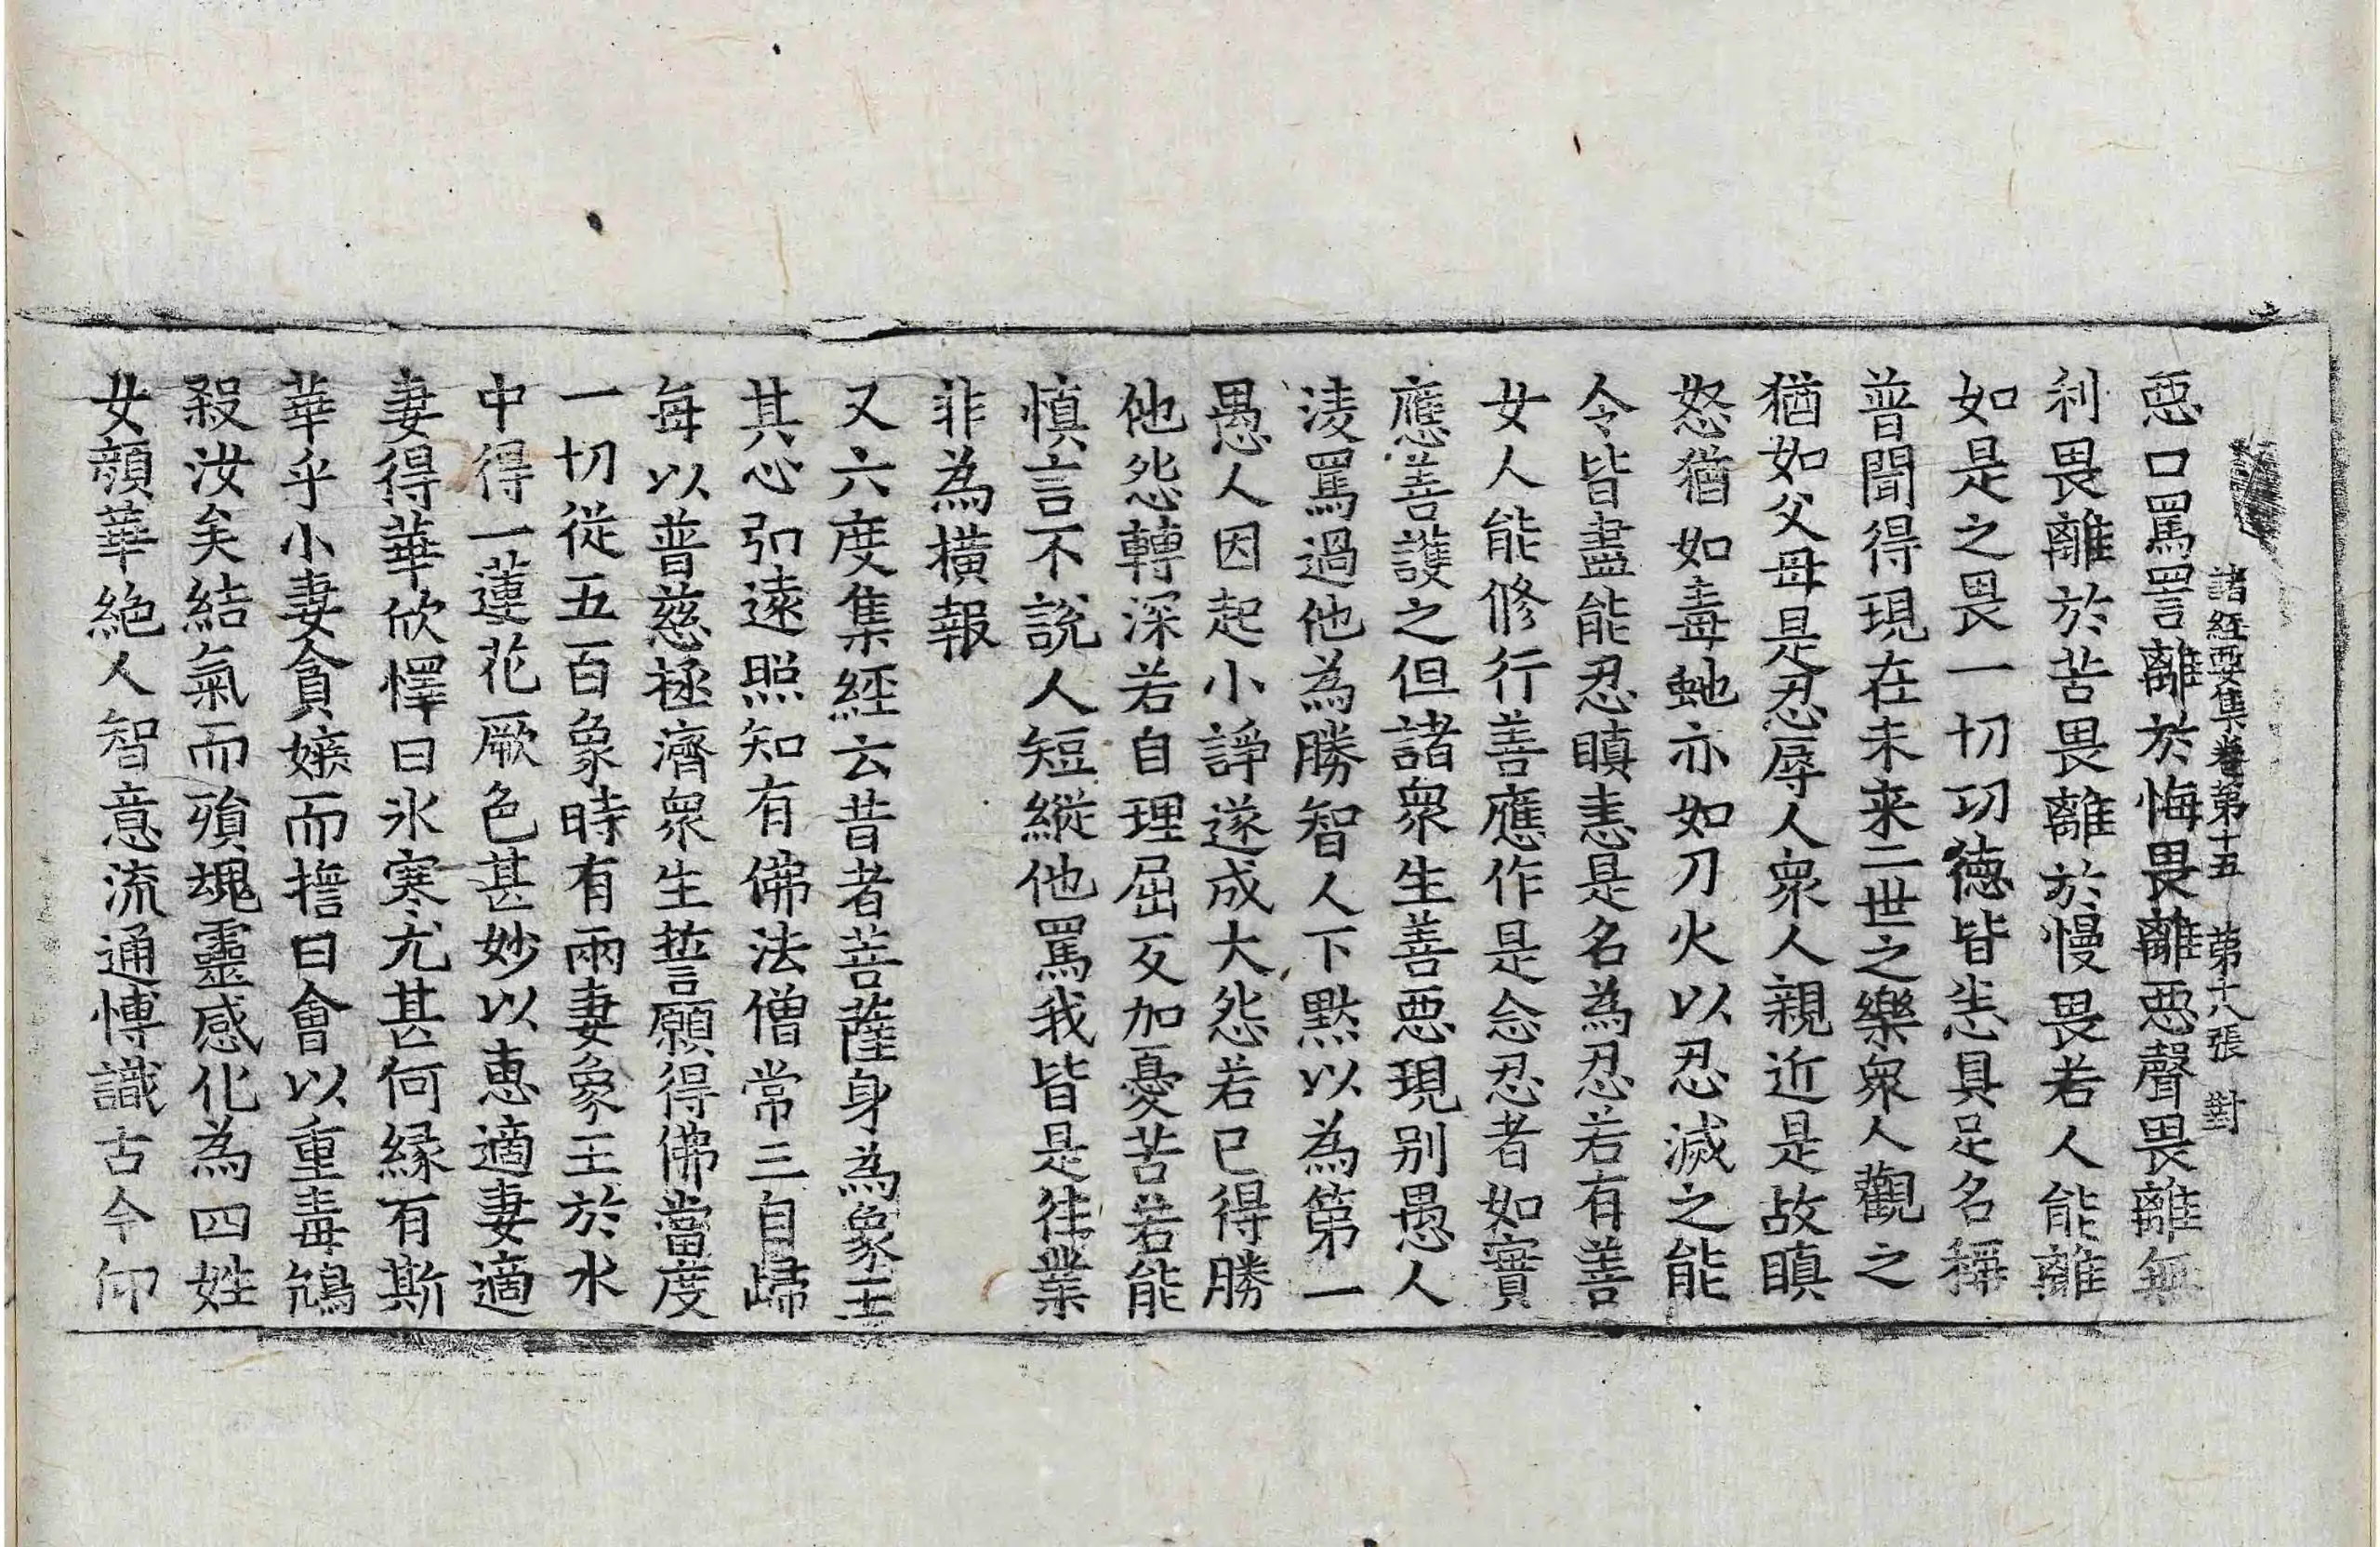 諸經要集卷第十五　第十八張　對
惡口罵詈離於悔畏離惡聲畏離無
利畏離於苦畏離於慢畏若人能離
如是之畏一切功德皆悉具足名稱
普聞得現在未来二世之樂衆人觀之
猶如父母是忍辱人衆人親近是故瞋
怒猶如毒虵亦如刀火以忍滅之能
令皆盡能忍瞋恚是名為忍若有善
女人能修行善應作是念忍者如寶
應善護之但諸衆生善惡現別愚人
淩罵過他為勝智人下默以為第一
愚人因起小諍遂成大怨若已得勝
他怨轉深若自理屈反加憂苦若能
慎言不說人短縱他罵我皆是往業
非為橫報
又六度集經云昔者菩薩身為象王
其心弘遠照知有佛法僧常三自歸
每以普慈拯濟衆生誓願得佛當度
一切從五百象時有兩妻象王於水
中得一蓮花厥色甚妙以惠適妻適
妻得華欣懌曰氷寒尤甚何緣有斯
華乎小妻貪嫉而擔曰會以重毒鴆
殺汝矣結氣而殞魂靈感化為四姓
女顏華絶人智意流通博識古今仰